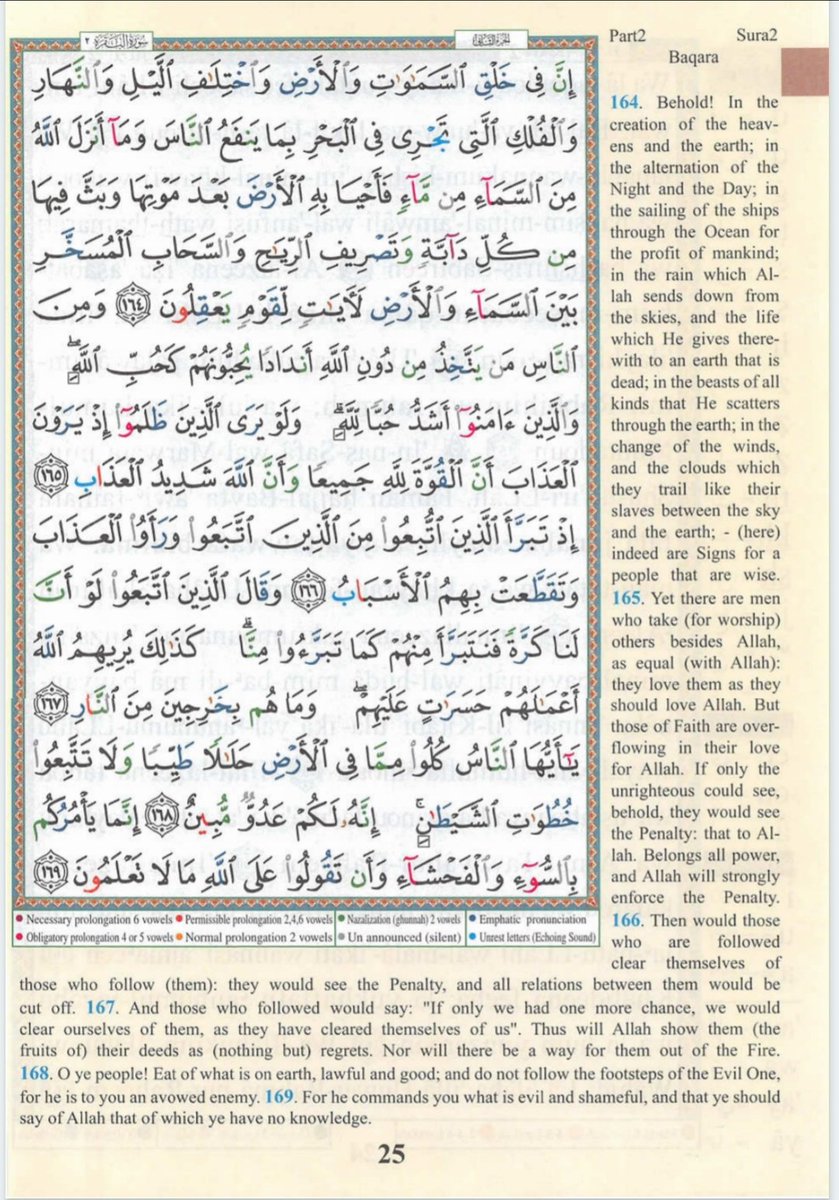 سورة البقرة ٢
الجزء الثاني
Part2 Sura2
Baqara
إِنَّ فِي خَلْقِ السَّمَٰوَٰتِ وَالْأَرْضِ وَاخْتِلَٰفِ الَّيْلِ وَالنَّهَارِ
وَالْفُلْكِ الَّتِي تَجْرِي فِي الْبَحْرِ بِمَا يَنفَعُ النَّاسَ وَمَآ أَنزَلَ اللَّهُ
مِنَ السَّمَآءِ مِن مَّآءٍ فَأَحْيَا بِهِ الْأَرْضَ بَعْدَ مَوْتِهَا وَبَثَّ فِيهَا
مِن كُلِّ دَآبَّةٍ وَتَصْرِيفِ الرِّيَٰحِ وَالسَّحَابِ الْمُسَخَّرِ
بَيْنَ السَّمَآءِ وَالْأَرْضِ لَأٓيَٰتٍ لِّقَوْمٍ يَعْقِلُونَ ١٦٤ وَمِنَ
النَّاسِ مَن يَتَّخِذُ مِن دُونِ اللَّهِ أَندَادًا يُحِبُّونَهُمْ كَحُبِّ اللَّهِ ۖ
وَالَّذِينَ ءَامَنُوٓا أَشَدُّ حُبًّا لِّلَّهِ ۗ وَلَوْ يَرَى الَّذِينَ ظَلَمُوٓا إِذْ يَرَوْنَ
الْعَذَابَ أَنَّ الْقُوَّةَ لِلَّهِ جَمِيعًا وَأَنَّ اللَّهَ شَدِيدُ الْعَذَابِ ١٦٥
إِذْ تَبَرَّأَ الَّذِينَ اتُّبِعُوا مِنَ الَّذِينَ اتَّبَعُوا وَرَأَوُا الْعَذَابَ
وَتَقَطَّعَتْ بِهِمُ الْأَسْبَابُ ١٦٦ وَقَالَ الَّذِينَ اتَّبَعُوا لَوْ أَنَّ
لَنَا كَرَّةً فَنَتَبَرَّأَ مِنْهُمْ كَمَا تَبَرَّءُوا مِنَّا ۗ كَذَٰلِكَ يُرِيهِمُ اللَّهُ
أَعْمَٰلَهُمْ حَسَرَٰتٍ عَلَيْهِمْ ۖ وَمَا هُم بِخَٰرِجِينَ مِنَ النَّارِ ١٦٧
يَٰٓأَيُّهَا النَّاسُ كُلُوا مِمَّا فِي الْأَرْضِ حَلَٰلًا طَيِّبًا وَلَا تَتَّبِعُوا
خُطُوَٰتِ الشَّيْطَٰنِ ۚ إِنَّهُۥ لَكُمْ عَدُوٌّ مُّبِينٌ ١٦٨ إِنَّمَا يَأْمُرُكُم
بِالسُّوٓءِ وَالْفَحْشَآءِ وَأَن تَقُولُوا عَلَى اللَّهِ مَا لَا تَعْلَمُونَ ١٦٩
● Necessary prolongation 6 vowels ● Permissible prolongation 2,4,6 vowels ● Nazalization (ghunnah) 2 vowels ● Emphatic pronunciation
● Obligatory prolongation 4 or 5 vowels ● Normal prolongation 2 vowels ● Un announced (silent) ● Unrest letters (Echoing Sound)
164. Behold! In the
creation of the heav-
ens and the earth; in
the alternation of the
Night and the Day; in
the sailing of the ships
through the Ocean for
the profit of mankind;
in the rain which Al-
lah sends down from
the skies, and the life
which He gives there-
with to an earth that is
dead; in the beasts of all
kinds that He scatters
through the earth; in the
change of the winds,
and the clouds which
they trail like their
slaves between the sky
and the earth; - (here)
indeed are Signs for a
people that are wise.
165. Yet there are men
who take (for worship)
others besides Allah,
as equal (with Allah):
they love them as they
should love Allah. But
those of Faith are over-
flowing in their love
for Allah. If only the
unrighteous could see,
behold, they would see
the Penalty: that to Al-
lah. Belongs all power,
and Allah will strongly
enforce the Penalty.
166. Then would those
who are followed
clear themselves of
those who follow (them): they would see the Penalty, and all relations between them would be
cut off. 167. And those who followed would say: "If only we had one more chance, we would
clear ourselves of them, as they have cleared themselves of us". Thus will Allah show them (the
fruits of) their deeds as (nothing but) regrets. Nor will there be a way for them out of the Fire.
168. O ye people! Eat of what is on earth, lawful and good; and do not follow the footsteps of the Evil One,
for he is to you an avowed enemy. 169. For he commands you what is evil and shameful, and that ye should
say of Allah that of which ye have no knowledge.
25